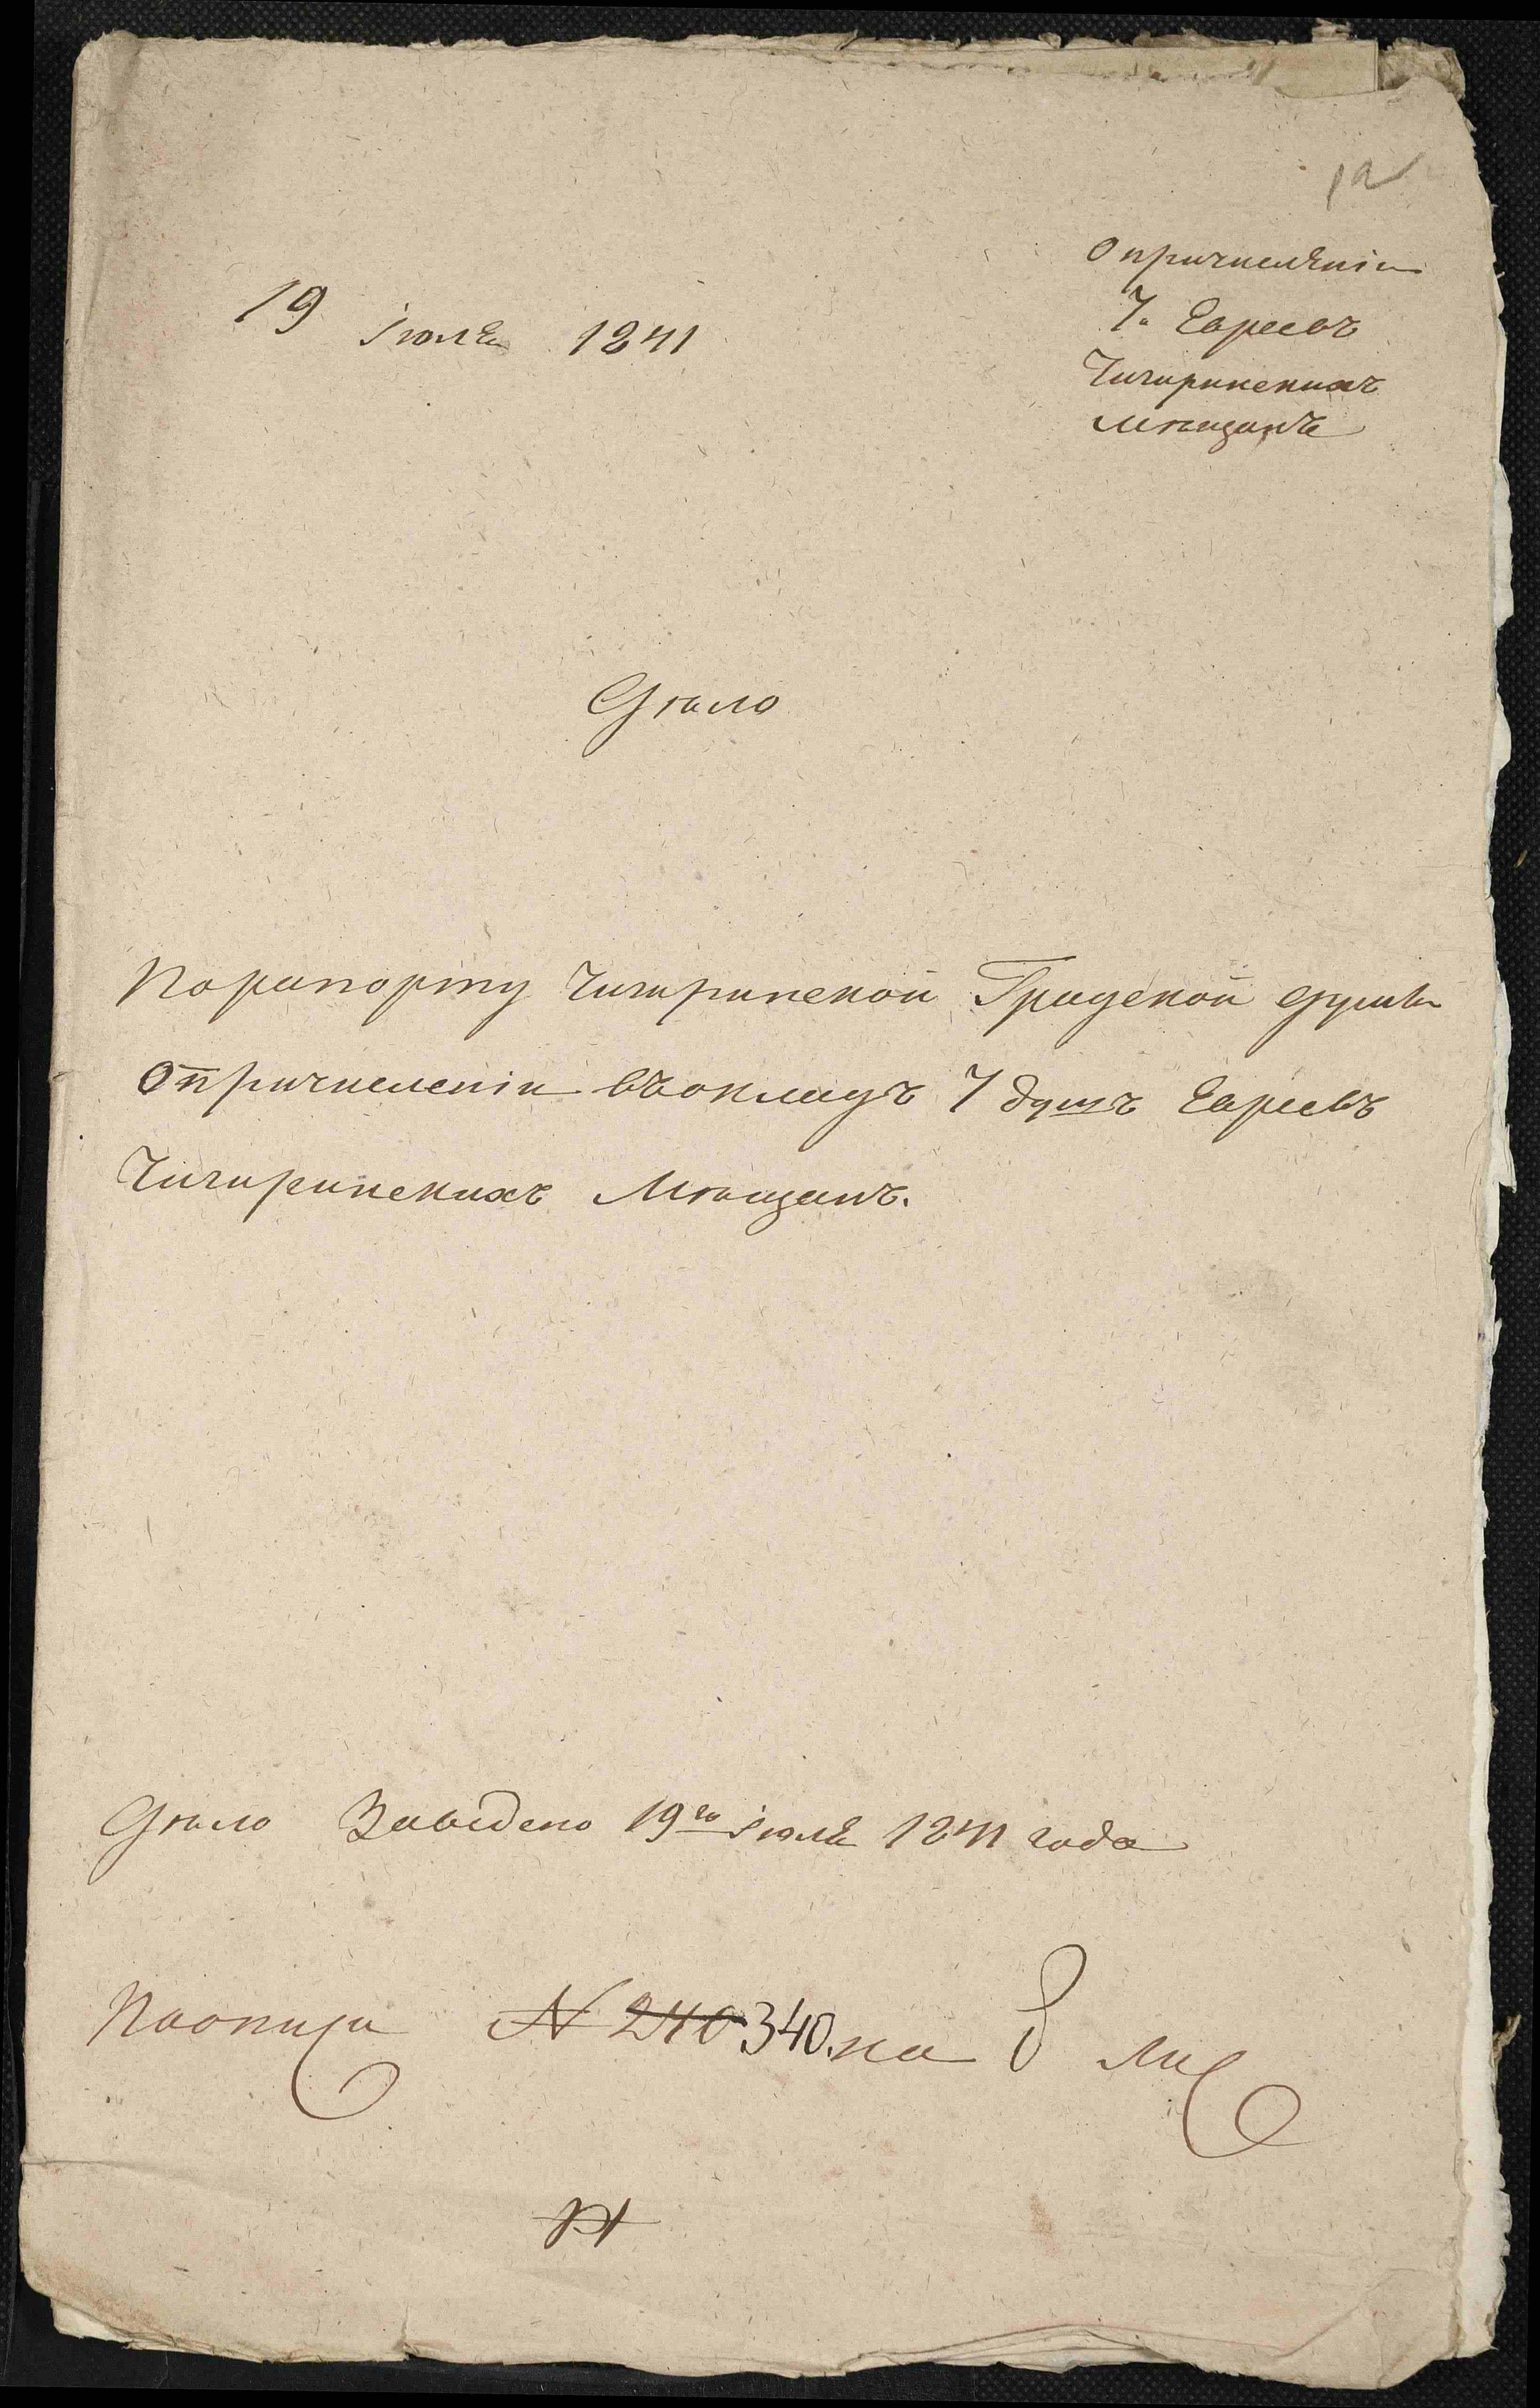 О причисленіи
7. Евреевъ
Чигиринскихъ
Мѣщанъ
19 Іюля 1841
Дѣло
По рапорту Чигиринской Градской думы
О причисленіи въ окладъ 7 душъ Евреевъ
Чигиринскихъ Мѣщанъ.
Дѣло Заведено 19го Іюля 1841 года
По описи № 240 340. на 8 лис